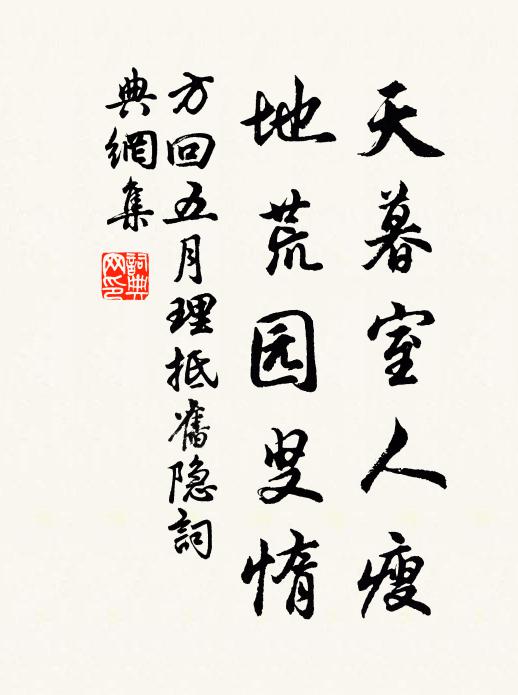 天暮室人瘦
地荒园叟惰
方回五月理抵舊隐詞
典網集
詞典网印